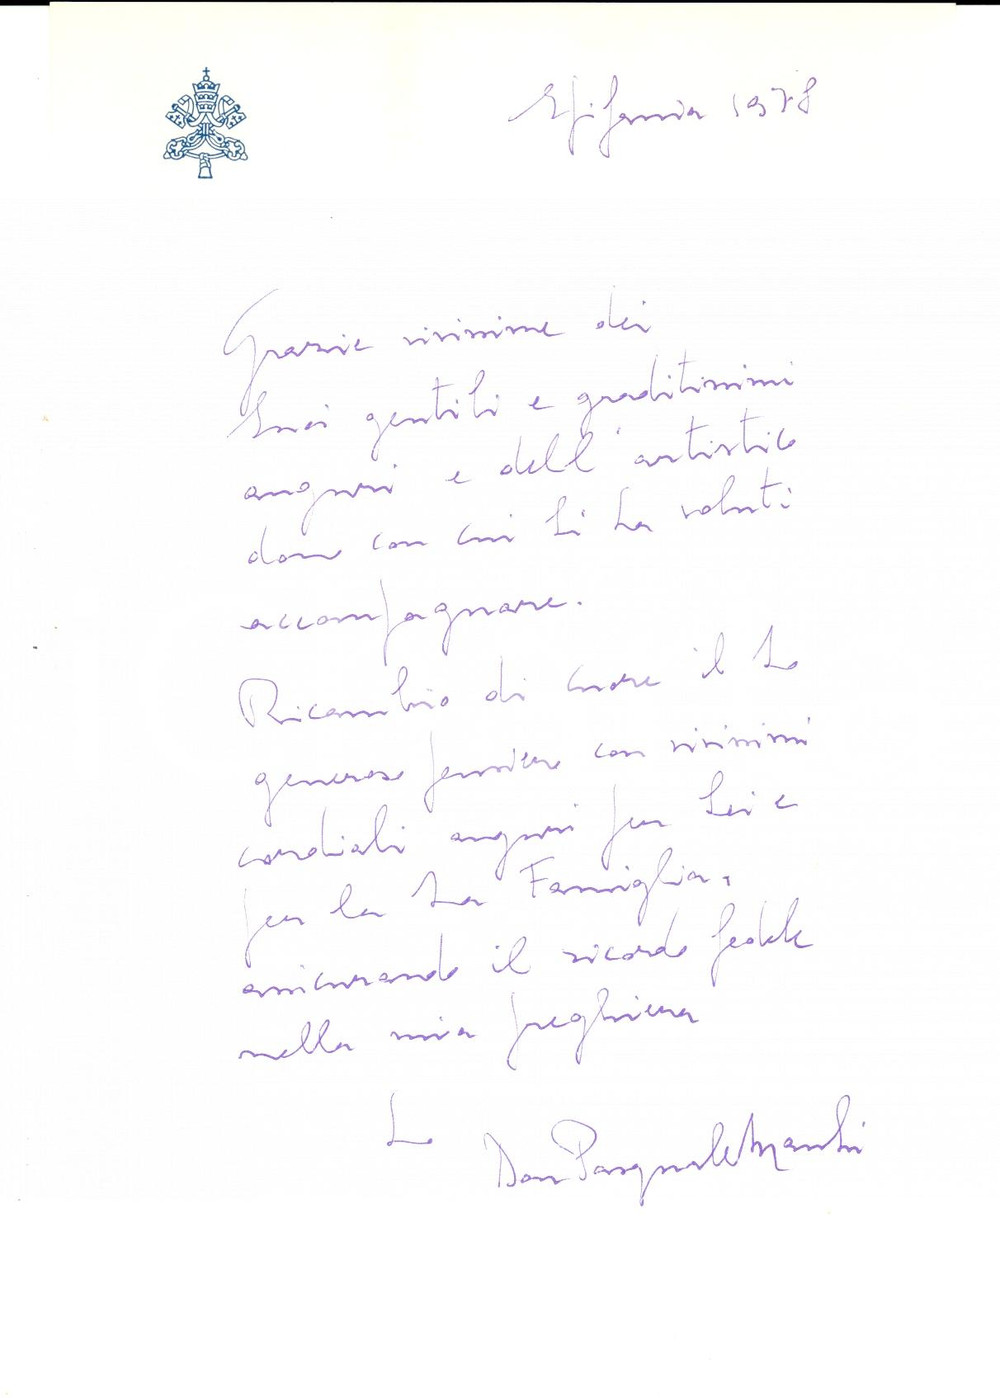 Epifania 1978
Grazie vivissime dei
Suoi gentili e graditissimi
auguri e dell'artistico
dono con cui li ha voluti
accompagnare.
Ricambio di cuore il Suo
generoso pensiero con vivissimi
cordiali auguri per Lei e
per la Sua Famiglia,
assicurando il ricordo fedele
nella mia preghiera
Suo
Don Pasquale Macchi